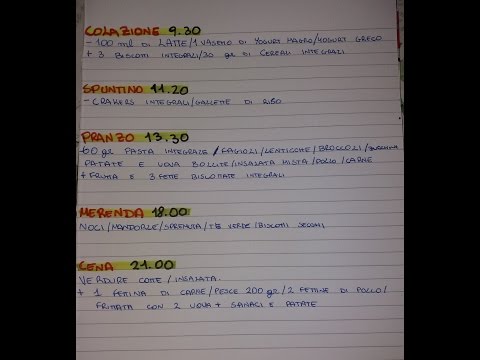 COLAZIONE 9.30
- 100 ml DI LATTE/1 VASETTO DI YOGURT MAGRO/YOGURT GRECO
+ 3 BISCOTTI INTEGRALI/30 gr DI CEREALI INTEGRALI
SPUNTINO 11.20
- CRAKERS INTEGRALI/GALLETTE DI RISO
PRANZO 13.30
-60 gr PASTA INTEGRALE/FAGIOLI/LENTICCHIE/BROCCOLI/
PATATE E UOVA BOLLITE/INSALATA MISTA/POLLO/CARNE
+ FRUTTA E 3 FETTE BISCOTTATE INTEGRALI
MERENDA 18.00
NOCI/MANDORLE/SPREMUTA/TÈ VERDE/BISCOTTI SECCHI
CENA 21.00
VERDURE COTTE/INSALATA.
+ 1 FETTINA DI CARNE/PESCE 200 gr/2 FETTINE DI POLLO/
FRITTATA CON 2 UOVA + E PATATE